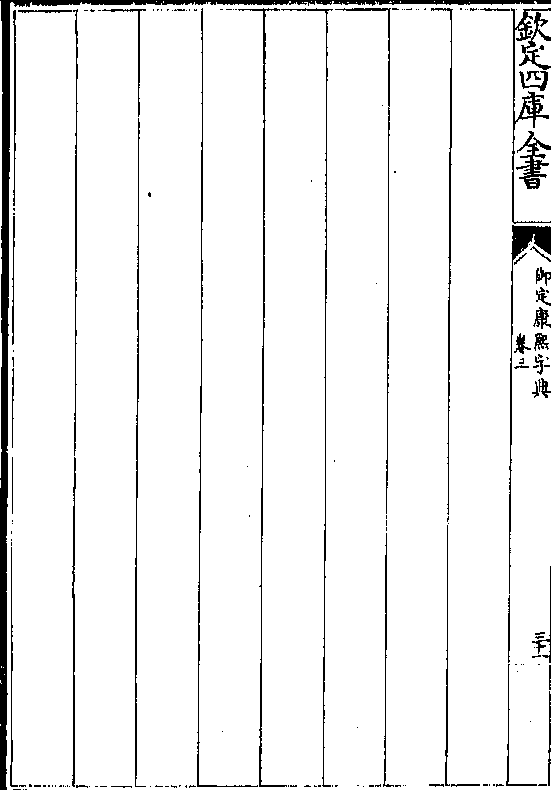 欽定四庫全書
御定康熙字典
卷三
三十一